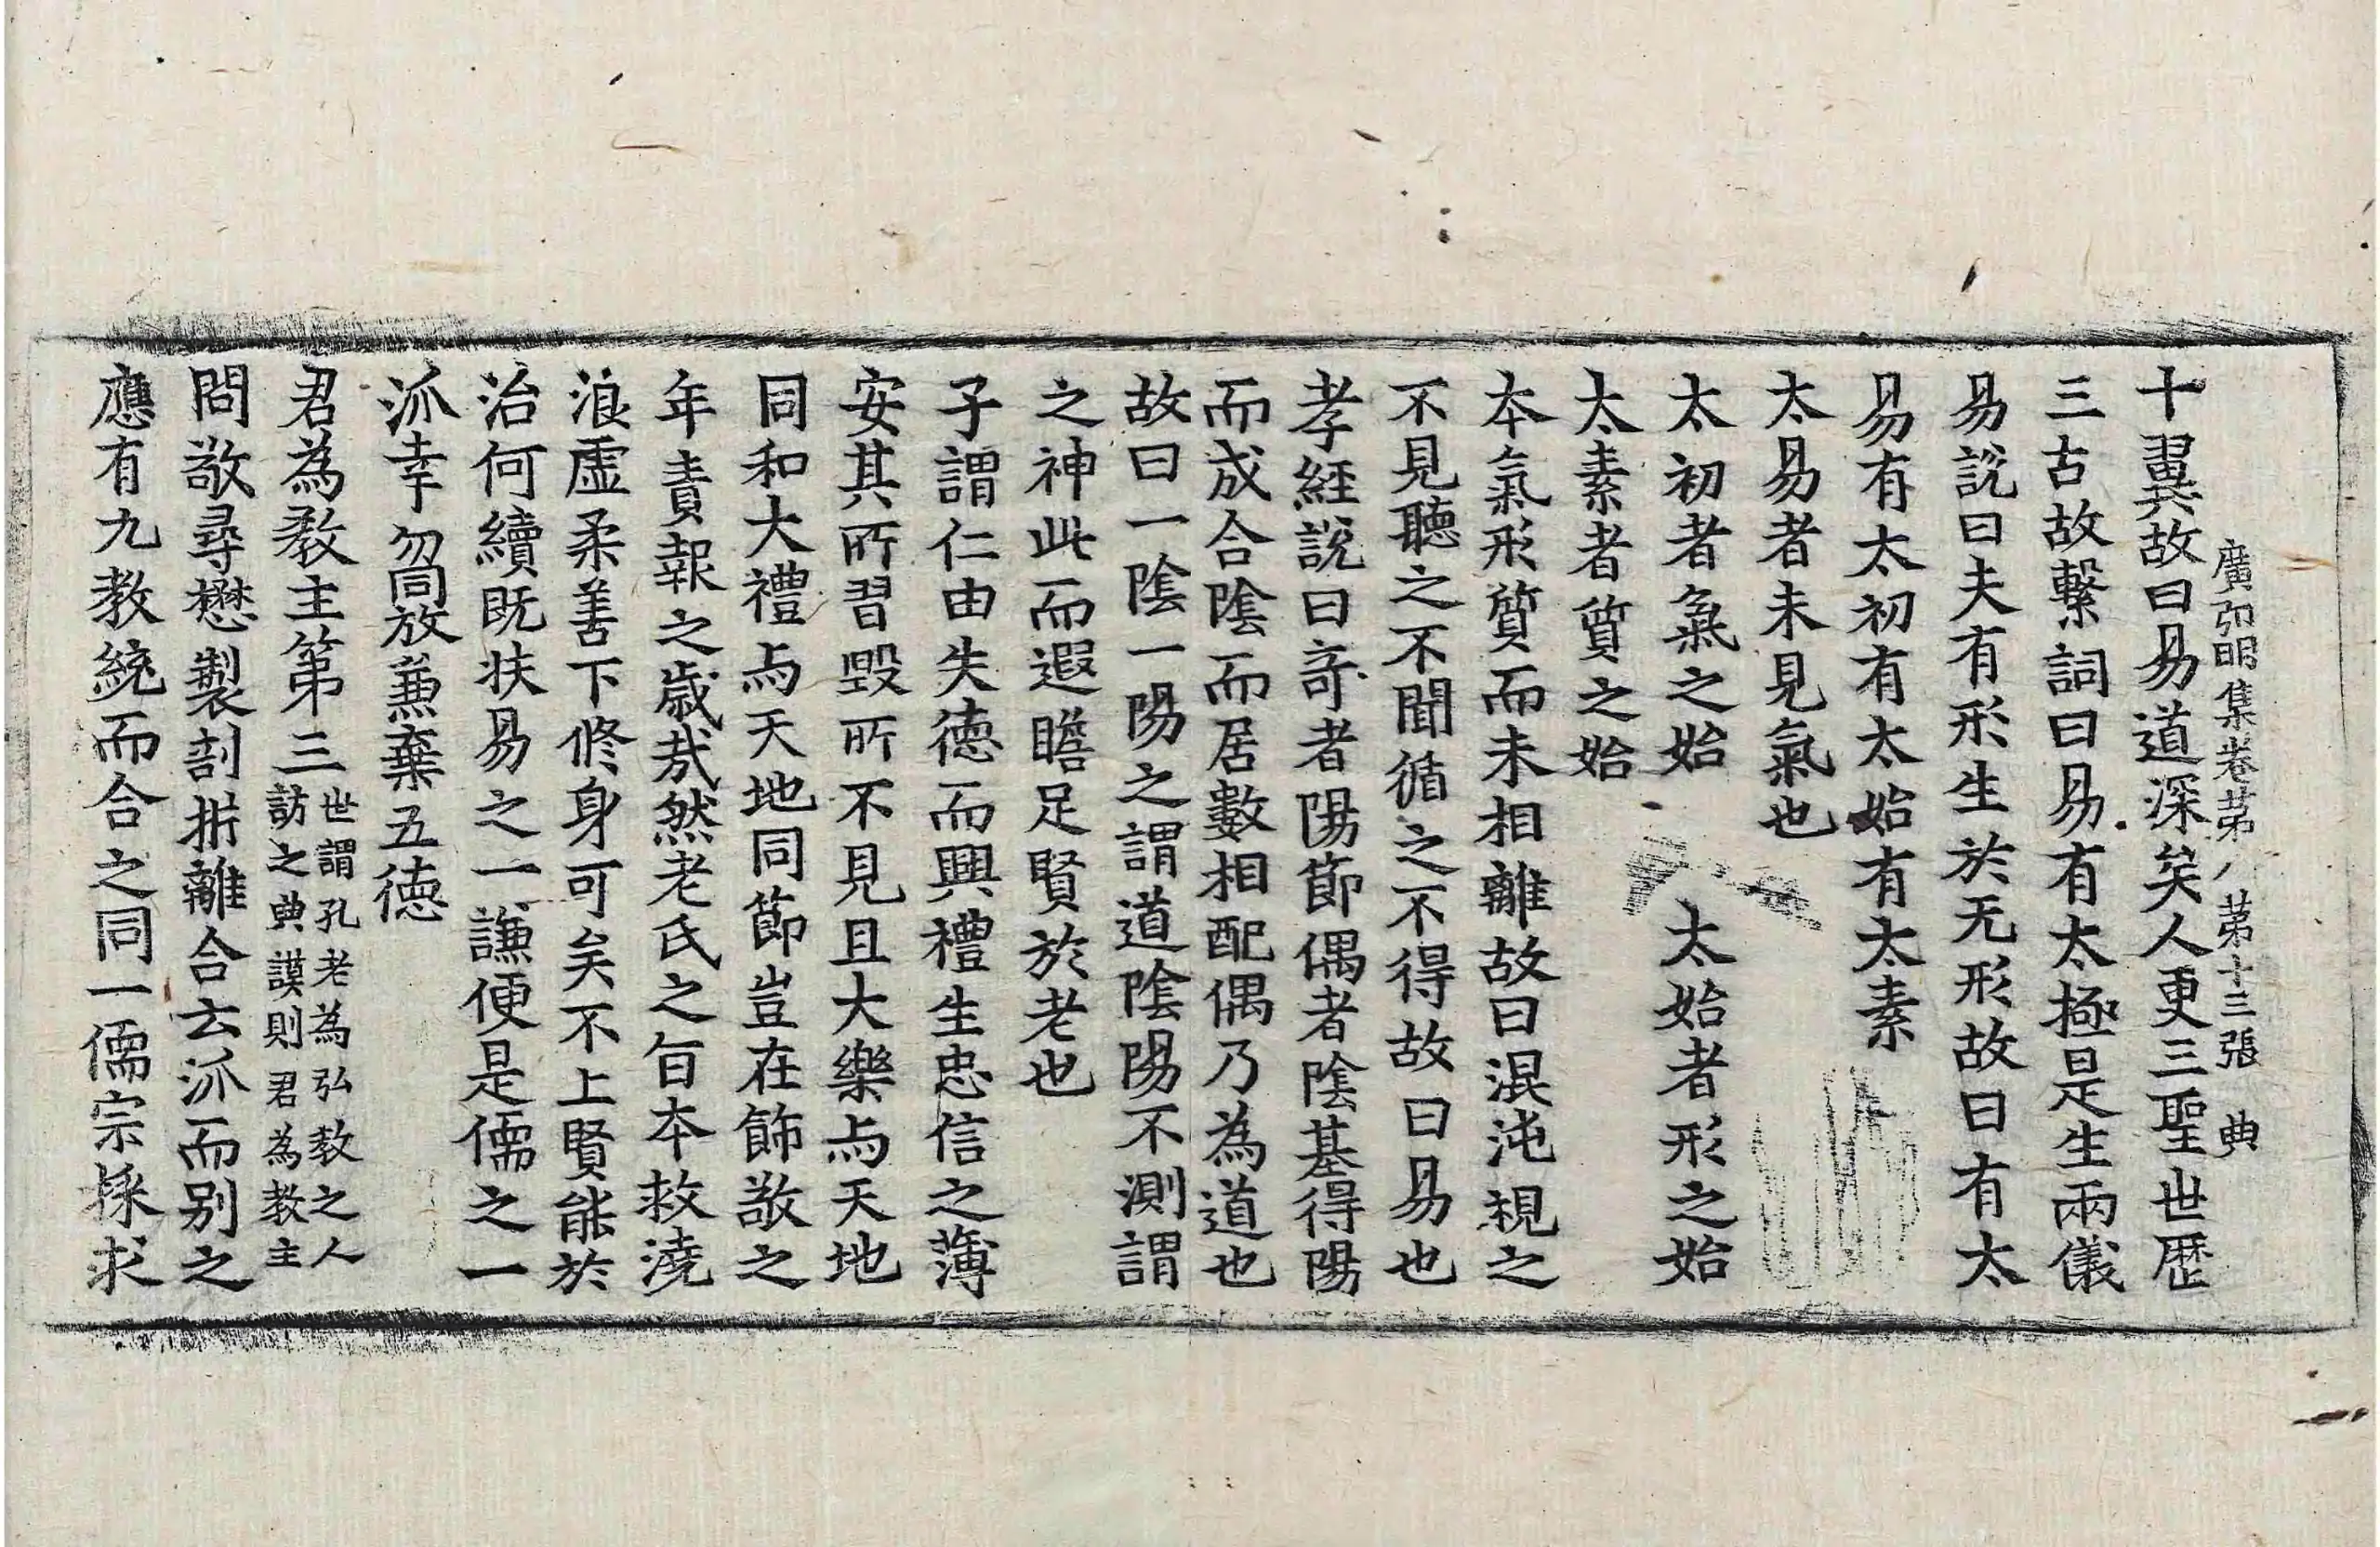 廣弘明集卷第八 第十三張 典
十翼故曰易道深矣人更三聖世歷
三古故繫詞曰易有太極是生兩儀
易說曰夫有形生於无形故曰有太
易有太初有太始有太素
太易者未見氣也
太初者氣之始 太始者形之始
太素者質之始
本氣形質而未相離故曰混沌視之
不見聽之不聞循之不得故曰易也
孝經說曰奇者陽節偶者陰基得陽
而成合陰而居數相配偶乃為道也
故曰一陰一陽之謂道陰陽不測謂
之神此而遐瞻足賢於老也
子謂仁由失德而興禮生忠信之薄
安其所習毀所不見且大樂与天地
同和大禮与天地同節豈在飾敬之
年責報之歲㢤然老氏之旨本救澆
浪虛柔善下修身可矣不上賢能於
治何續既扶易之一謙便是儒之一
派幸勿同放兼棄五德
君為教主第三世謂孔老為弘教之人
訪之典謨則君為教主
問敬尋懋製剖析離合云派而別之
應有九教統而合之同一儒宗採求